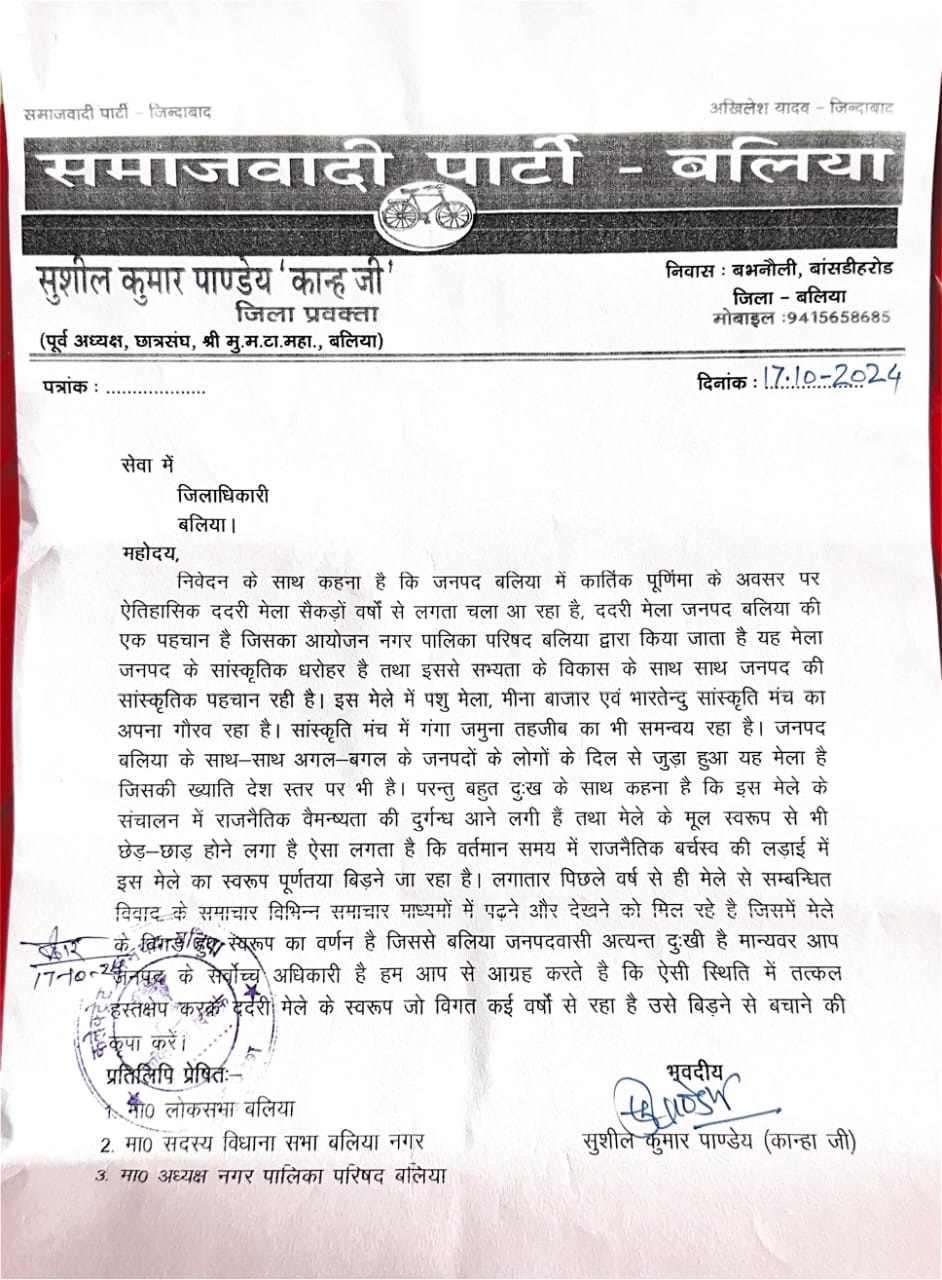 समाजवादी पार्टी - जिन्दाबाद
अखिलेश यादव - जिन्दाबाद
समाजवादी पार्टी - बलिया
सुशील कुमार पाण्डेय 'कान्ह जी'
जिला प्रवक्ता
(पूर्व अध्यक्ष, छात्रसंघ, श्री मु.म.टा.महा., बलिया)
निवास : बभनौली, बांसडीहरोड
जिला - बलिया
मोबाइल :9415658685
पत्रांक : ...................
दिनांक : 17.10-2024
सेवा में
जिलाधिकारी
बलिया।
महोदय,
निवेदन के साथ कहना है कि जनपद बलिया में कार्तिक पूर्णिमा के अवसर पर
ऐतिहासिक ददरी मेला सैकड़ों वर्षो से लगता चला आ रहा है, ददरी मेला जनपद बलिया की
एक पहचान है जिसका आयोजन नगर पालिका परिषद बलिया द्वारा किया जाता है यह मेला
जनपद के सांस्कृतिक धरोहर है तथा इससे सभ्यता के विकास के साथ साथ जनपद की
सांस्कृतिक पहचान रही है। इस मेले में पशु मेला, मीना बाजार एवं भारतेन्दु सांस्कृति मंच का
अपना गौरव रहा है। सांस्कृति मंच में गंगा जमुना तहजीब का भी समन्वय रहा है। जनपद
बलिया के साथ–साथ अगल–बगल के जनपदों के लोगों के दिल से जुड़ा हुआ यह मेला है
जिसकी ख्याति देश स्तर पर भी है। परन्तु बहुत दुःख के साथ कहना है कि इस मेले के
संचालन में राजनैतिक वैमन्ष्यता की दुर्गन्ध आने लगी हैं तथा मेले के मूल स्वरूप से भी
छेड़–छाड़ होने लगा है ऐसा लगता है कि वर्तमान समय में राजनैतिक बर्चस्व की लड़ाई में
इस मेले का स्वरूप पूर्णतया बिड़ने जा रहा है। लगातार पिछले वर्ष से ही मेले से सम्बन्धित
विवाद के समाचार विभिन्न समाचार माध्यमों में पढ़ने और देखने को मिल रहे है जिसमें मेले
के बिगड़े हुए स्वरूप का वर्णन है जिससे बलिया जनपदवासी अत्यन्त दुःखी है मान्यवर आप
17-10-24
जनपद के सर्वोच्च अधिकारी है हम आप से आग्रह करते है कि ऐसी स्थिति में तत्कल
हस्तक्षेप करके ददरी मेले के स्वरूप जो विगत कई वर्षो से रहा है उसे बिड़ने से बचाने की
कृपा करें।
प्रतिलिपि प्रेषितः–
1. मा0 लोकसभा बलिया
2. मा0 सदस्य विधाना सभा बलिया नगर
3. मा0 अध्यक्ष नगर पालिका परिषद बलिया
भवदीय
सुशील कुमार पाण्डेय (कान्हा जी)